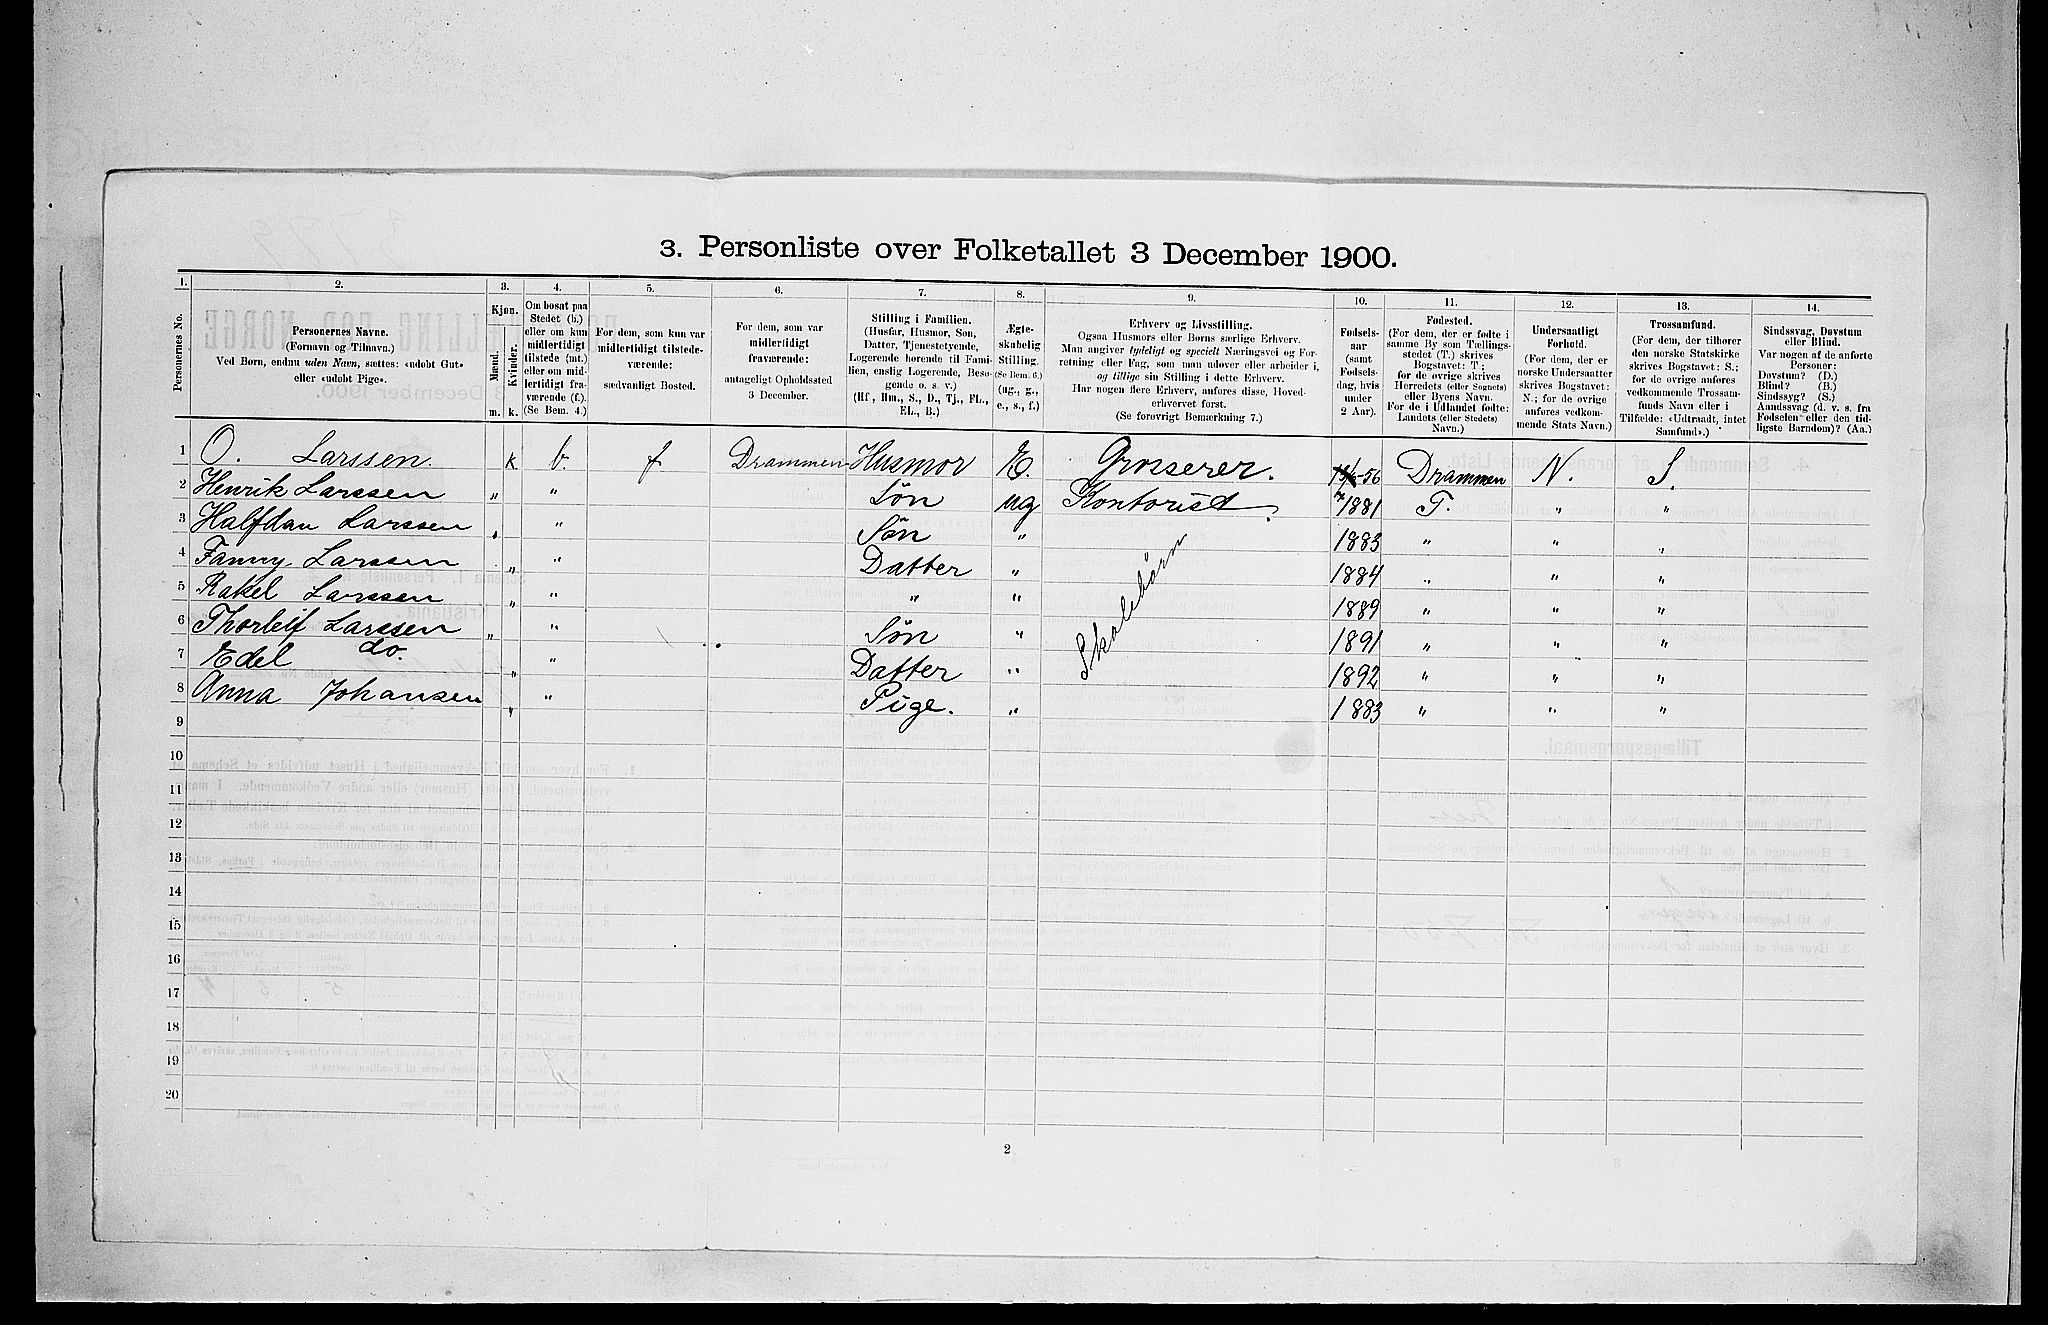 3. Personliste over Folketallet 3 December 1900.
1. 2. 3. 4. 5. 6. 7. 8. 9. 10. 11. 12. 13. 14.
Personernes No.
Personernes Navne.
(Fornavn og Tilnavn.)
Ved Børn, endnu uden Navn, sættes: «udøbt Gut»
eller «udøbt Pige».
Kjøn.
Mænd.
Kvinder.
m. k.
Om bosat paa
Stedet (b.)
eller om kun
midlertidigt
tilstede (mt.)
eller om mid-
lertidigt fra-
værende (f.).
(Se Bem. 4.)
For dem, som kun var
midlertidigt tilstede-
værende:
sædvanligt Bosted.
For dem, som var
midlertidigt
fraværende:
antageligt Opholdssted
3 December.
Stilling i Familien.
(Husfar, Husmor, Søn,
Datter, Tjenestetyende,
Logerende hørende til Fami-
lien, enslig Logerende, Besø-
gende o. s. v.)
(Hf., Hm., S., D., Tj., FL.,
EL., B.)
Ægte-
skabelig
Stilling.
(Se Bem. 6.)
(ug., g.,
e., s., f.)
Erhverv og Livsstilling.
Ogsaa Husmors eller Børns særlige Erhverv.
Man angiver tydeligt og specielt Næringsvei og For-
retning eller Fag, som man udøver eller arbeider i,
og tillige sin Stilling i dette Erhverv.
Har nogen flere Erhverv, anføres disse, Hoved-
erhvervet først.
(Se forøvrigt Bemærkning 7.)
Fødsels-
aar
(samt
Fødsels-
dag, hvis
under
2 Aar).
Fødested.
(For dem, der er fødte i
samme By som Tællings-
stedet (T.) skrives
Bogstavet: T;
for de øvrige skrives
Herredets (eller Sognets)
eller Byens Navn.
For de i Udlandet fødte:
Landets (eller Stedets)
Navn.)
Undersaatligt
Forhold.
(For dem, der er
norske Undersaatter
skrives Bogstavet:
N.; for de øvrige
anføres vedkom-
mende Stats Navn.)
Trossamfund.
(For dem, der tilhører
den norske Statskirke
skrives Bogstavet: S.;
for de øvrige anføres
vedkommende Trossam-
funds Navn eller i
Tilfælde: «Udtraadt, intet
Samfund».)
Sindssvag, Døvstum
eller Blind.
Var nogen af de anførte
Personer:
Døvstum? (D.)
Blind? (B.)
Sindssyg? (S.)
Aandssvag (d. v. s. fra
Fødselen eller den tid-
ligste Barndom)? (Aa.)
1 O. Larssen. k b. f Drammen Husmor E. Grosserer. Drammen N. S.
2 Henrik Larssen „ „ Søn ug Kontorist. 1881 T. „ „
3 Halfdan Larssen „ „ Søn „ 1883 „ „ „
4 Fanny Larssen „ „ Datter „ 1884 „ „ „
5 Rakel Larssen „ „ „ „ 1889 „ „ „
6 Thorleif Larssen „ „ Søn „ 1891 „ „ „
7 Edel do. „ „ Datter „ 1892 „ „ „
8 Anna Johansen „ „ Pige. „ 1883 „ „ „
Skolebørn
9
10
11
12
13
14
15
16
17
18
19
20
2